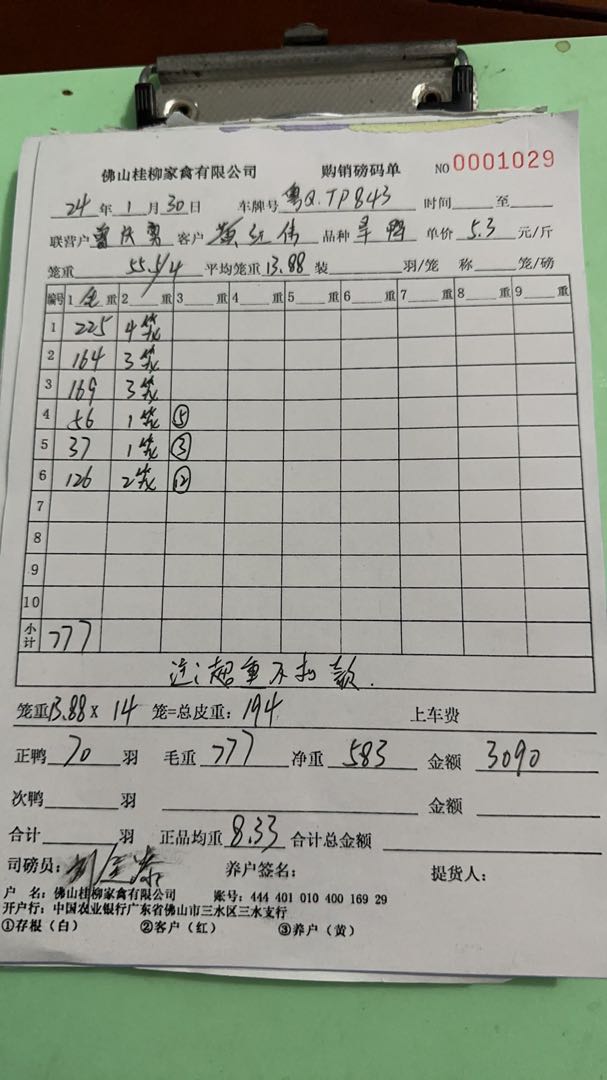 佛山桂柳家禽有限公司 购销磅码单 NO 0001029
24年1月30日 车牌号 粤Q.TP843 时间 至
联营户 客户 品种 单价 5.3 元/斤
笼重 55.5/4 平均笼重 13.88 装 羽/笼 称 笼/磅
编号 1 毛 重 2 重 3 重 4 重 5 重 6 重 7 重 8 重 9 重
1 225 4笼
2 164 3笼
3 169 3笼
4 56 1笼 ⑤
5 37 1笼 ③
6 126 2笼 ⑫
7
8
9
10
小计 777
注:超重不扣款.
笼重13.88 x 14 笼=总皮重: 194 上车费
正鸭 70 羽 毛重 777 净重 583 金额 3090
次鸭 羽 金额
合计 羽 正品均重 8.33 合计总金额
司磅员: 养户签名: 提货人:
户 名: 佛山桂柳家禽有限公司 账号: 444 401 010 400 169 29
开户行: 中国农业银行广东省佛山市三水区三水支行
①存根(白) ②客户(红) ③养户(黄)